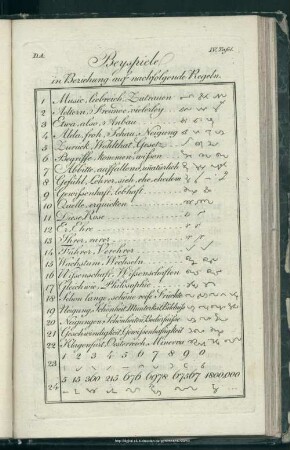 D.A.
IV. Tafel.
Beyspiele
in Beziehung auf nachfolgende Regeln.
1 Music, liebreich, Zutrauen
2 Aeltern, Freünde, vielerley
3 Etwa, also, Anbau
4 froh, Neigung
5 Zurück, Wohlthat, Gesetz
6 Begriffe, kommen, wissen
7 Abbitte, auffallend, unnatürlich
8 Gefühl, Lehrer, sich, ehe, ehedem
9 Gewissenhaft, lebhaft
10 Quelle, erquicken
11 Diese Rose
12 Er, Ehre
13 Ihrer, eurer
14 Führer, Verehrer
15 Wachstum, Wechseln
16 Wissenschaft, Wissenschaften
17 Gleichwie, Philosophie
18 Schon lange, schöne reife Früchte
19 Schönheit, Munterkeit
20 Neigungen, Schönheiten, Bedürfniße
21 Geschwindigkeit, Gewissenhaftigkeit
22 Klagenfurt, Oesterreich, Minerva
1 2 3 4 5 6 7 8 9 0
23
5 15 360 215 676 6978 67567 1800,000
24